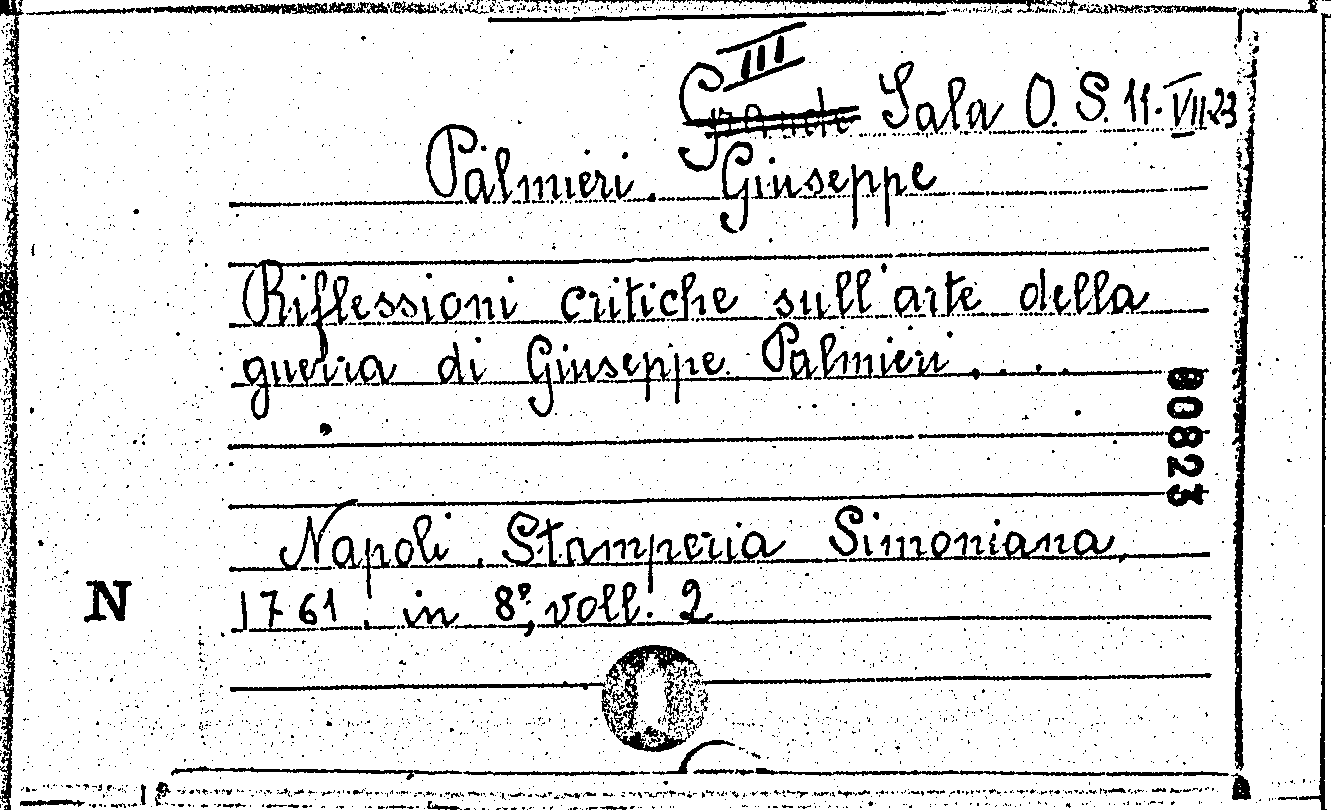 III
Grande Sala O. S. 11. VII. 23
Palmieri. Giuseppe
Riflessioni critiche sull'arte della
guerra di Giuseppe Palmieri . . . .
00823
Napoli. Stamperia Simoniana,
N
1761. in 8º, voll. 2